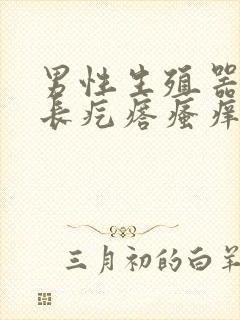 男性生殖器
长疙瘩瘙痒
三月初的白羊